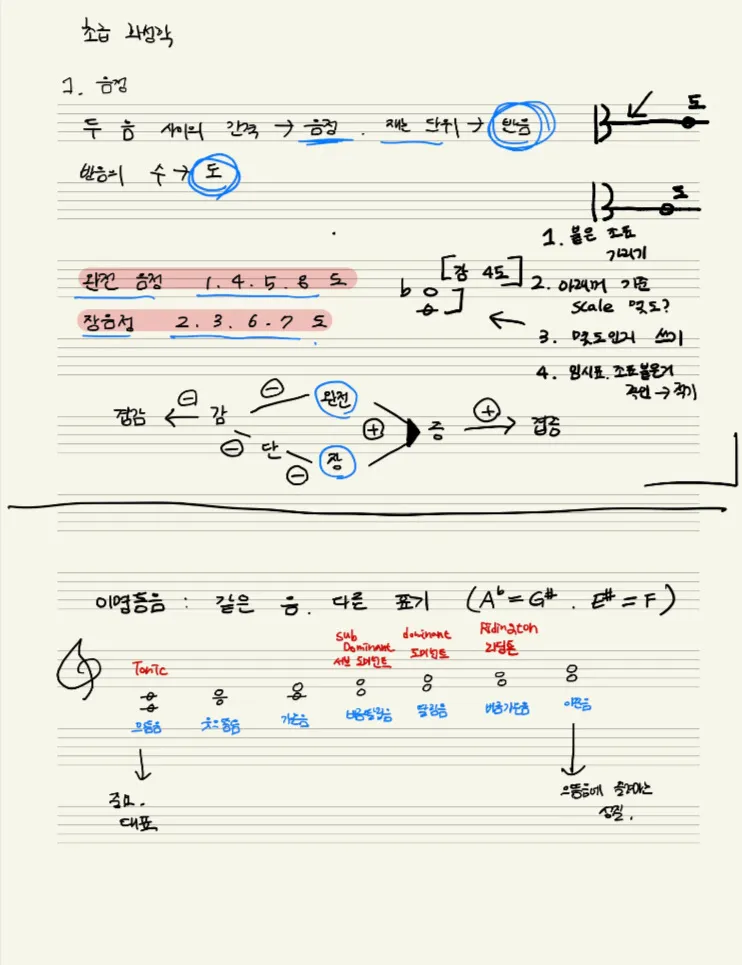 초급 화성학
1. 음정
두 음 사이의 간격 → 음정. 재는 단위 → 반음
도
반음의 수 → 도
도
1. 붙은 조표 가리기
[감 4도]
완전 음정 1. 4. 5. 8 도
b
2. 아래꺼 기준 scale 몇도?
장음정 2. 3. 6. 7 도
3. 몇도인지 쓰기
4. 임시표. 조표붙은거 확인 → 적기
겹감 ← 감 완전 증 → 겹증
단 장
이명동음 : 같은 음. 다른 표기 (A♭=G# . E#=F)
Tonic
sub Dominant 서브 도미넌트
dominant 도미넌트
Ridington 리딩톤
으뜸음 웃으뜸음 가온음 버금딸림음 딸림음 버금가온음 이끈음
중요. 대표
으뜸음에 올려가는 성질.